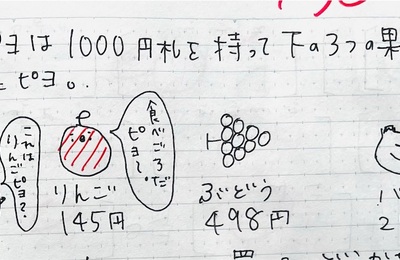 ピヨは 1000 円札を 持って 下の3つの果
ピヨ。
これは
りんごピヨ?
食べごろだ
ピヨ〜。
りんご
145円
ぶどう
498円
2